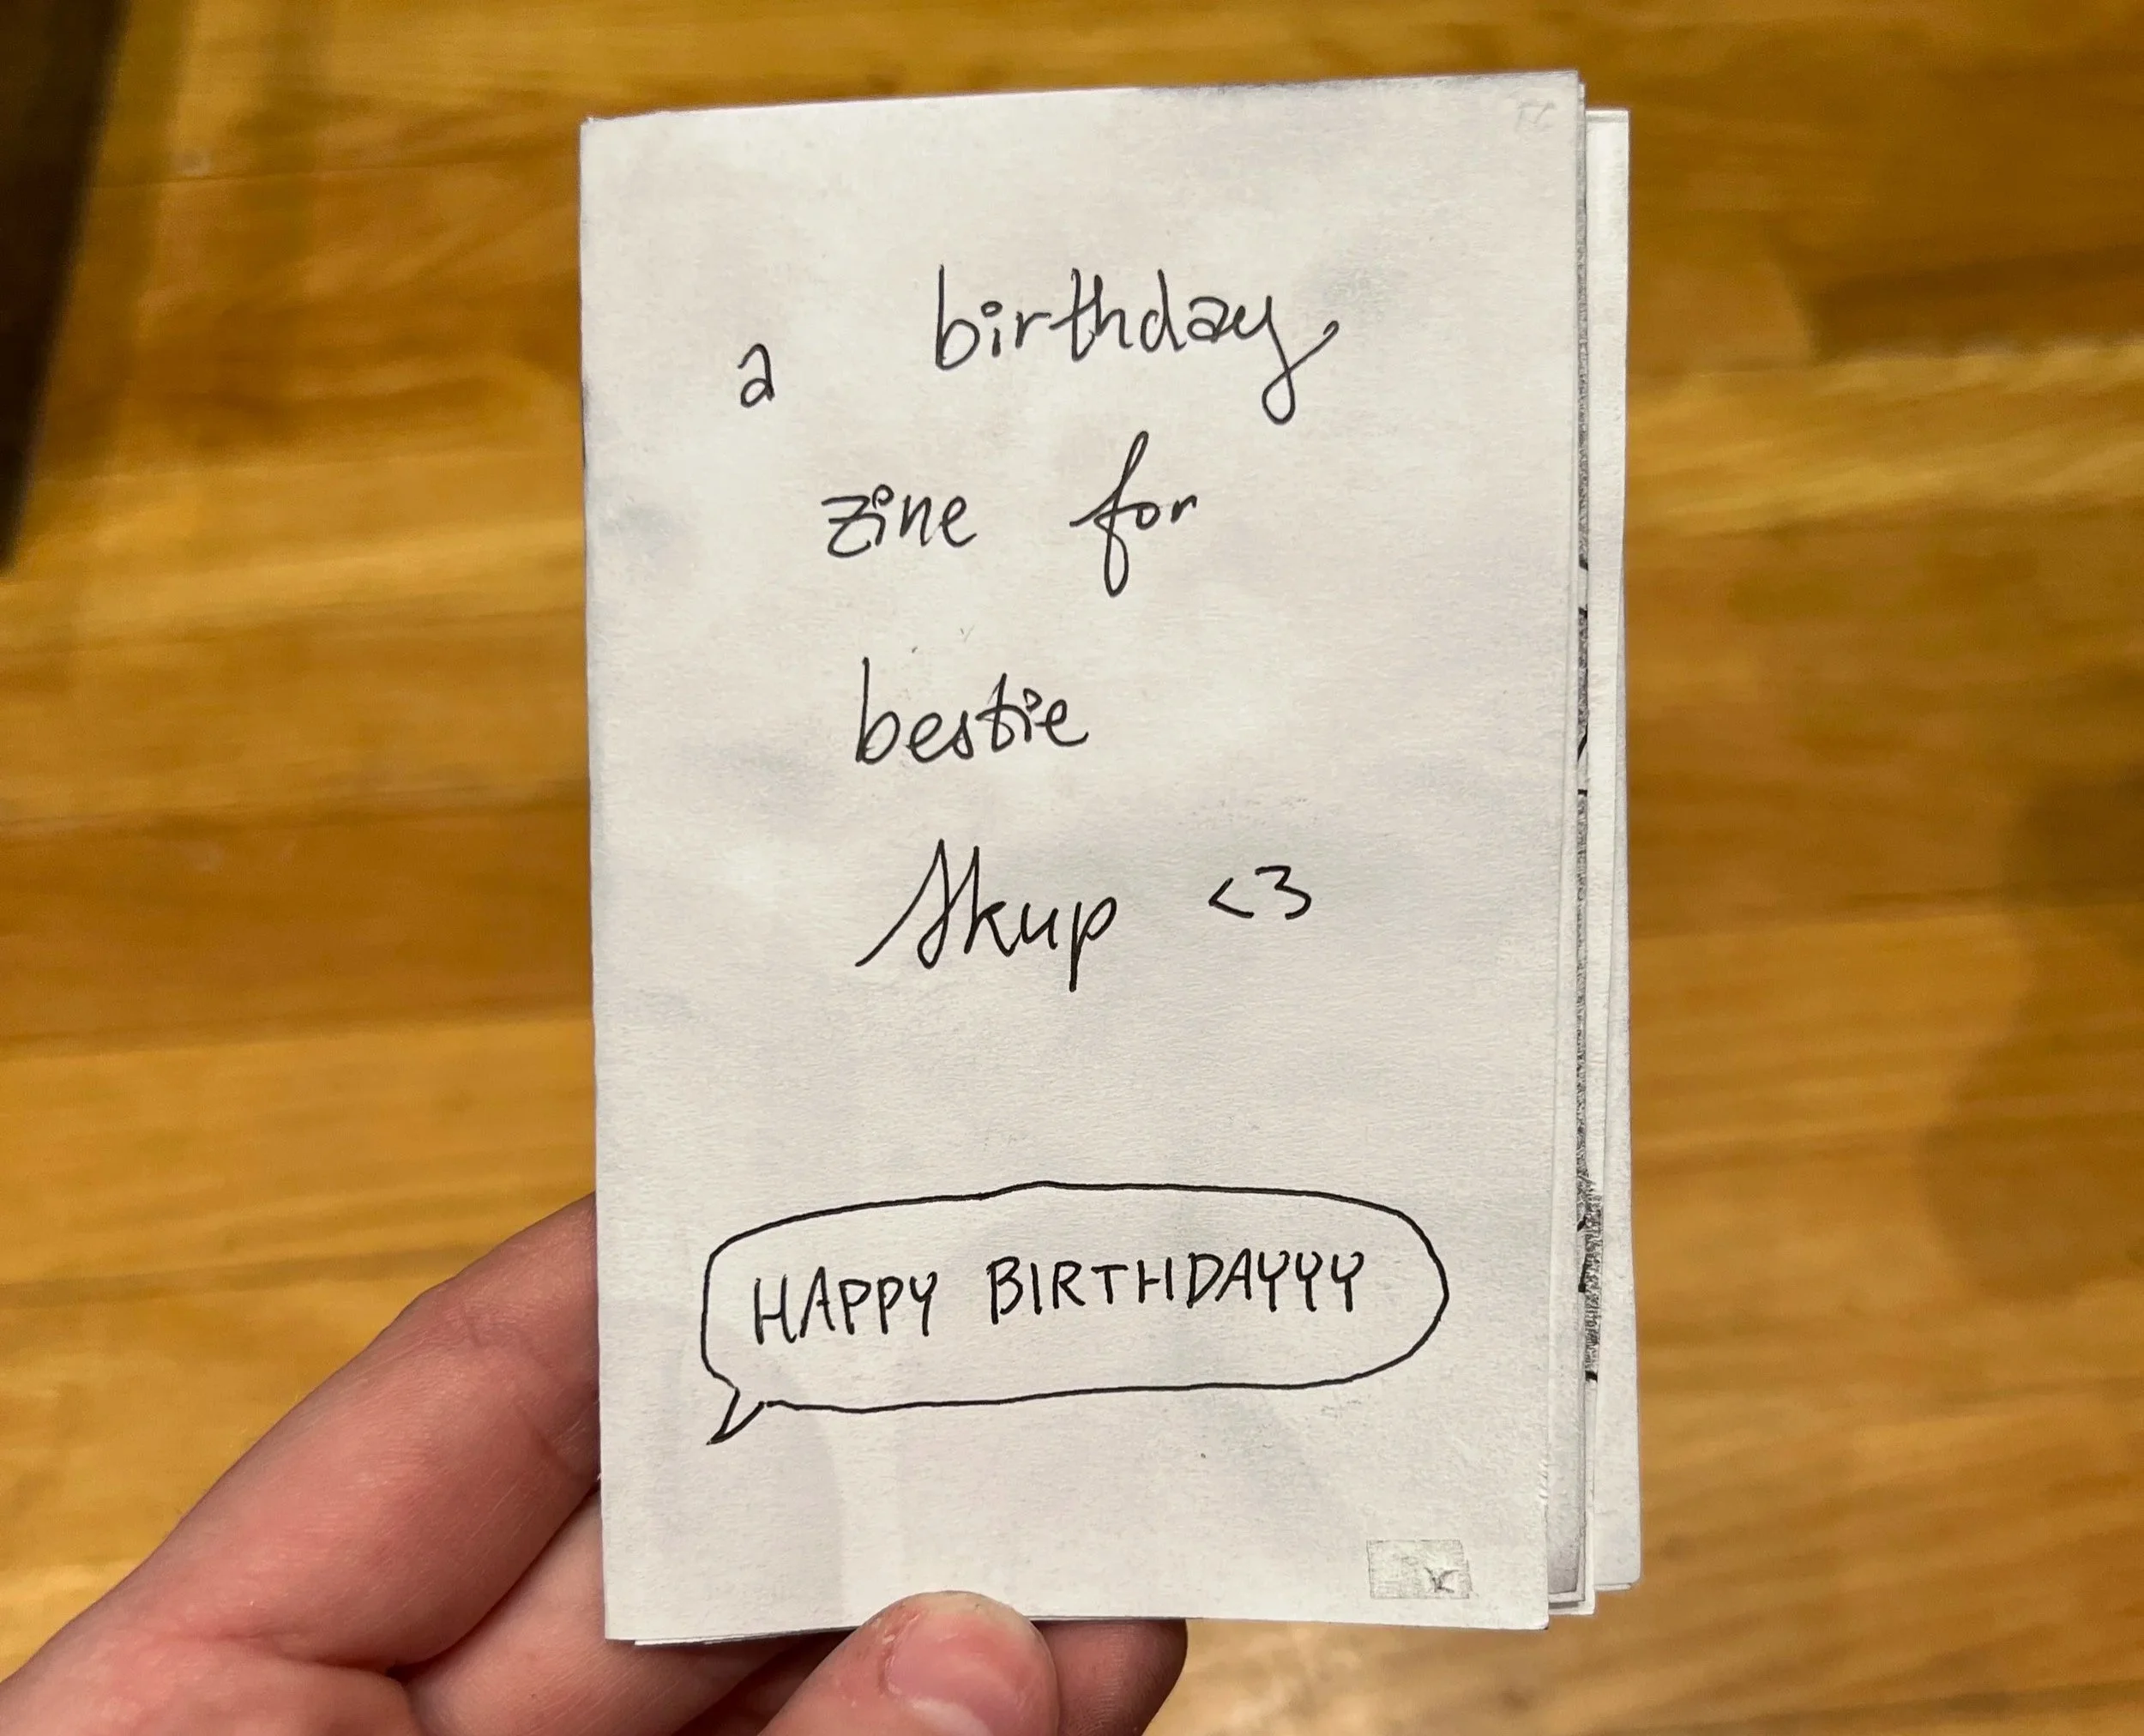 a birthday
zine for
bestie
Skup <3
HAPPY BIRTHDAYYY